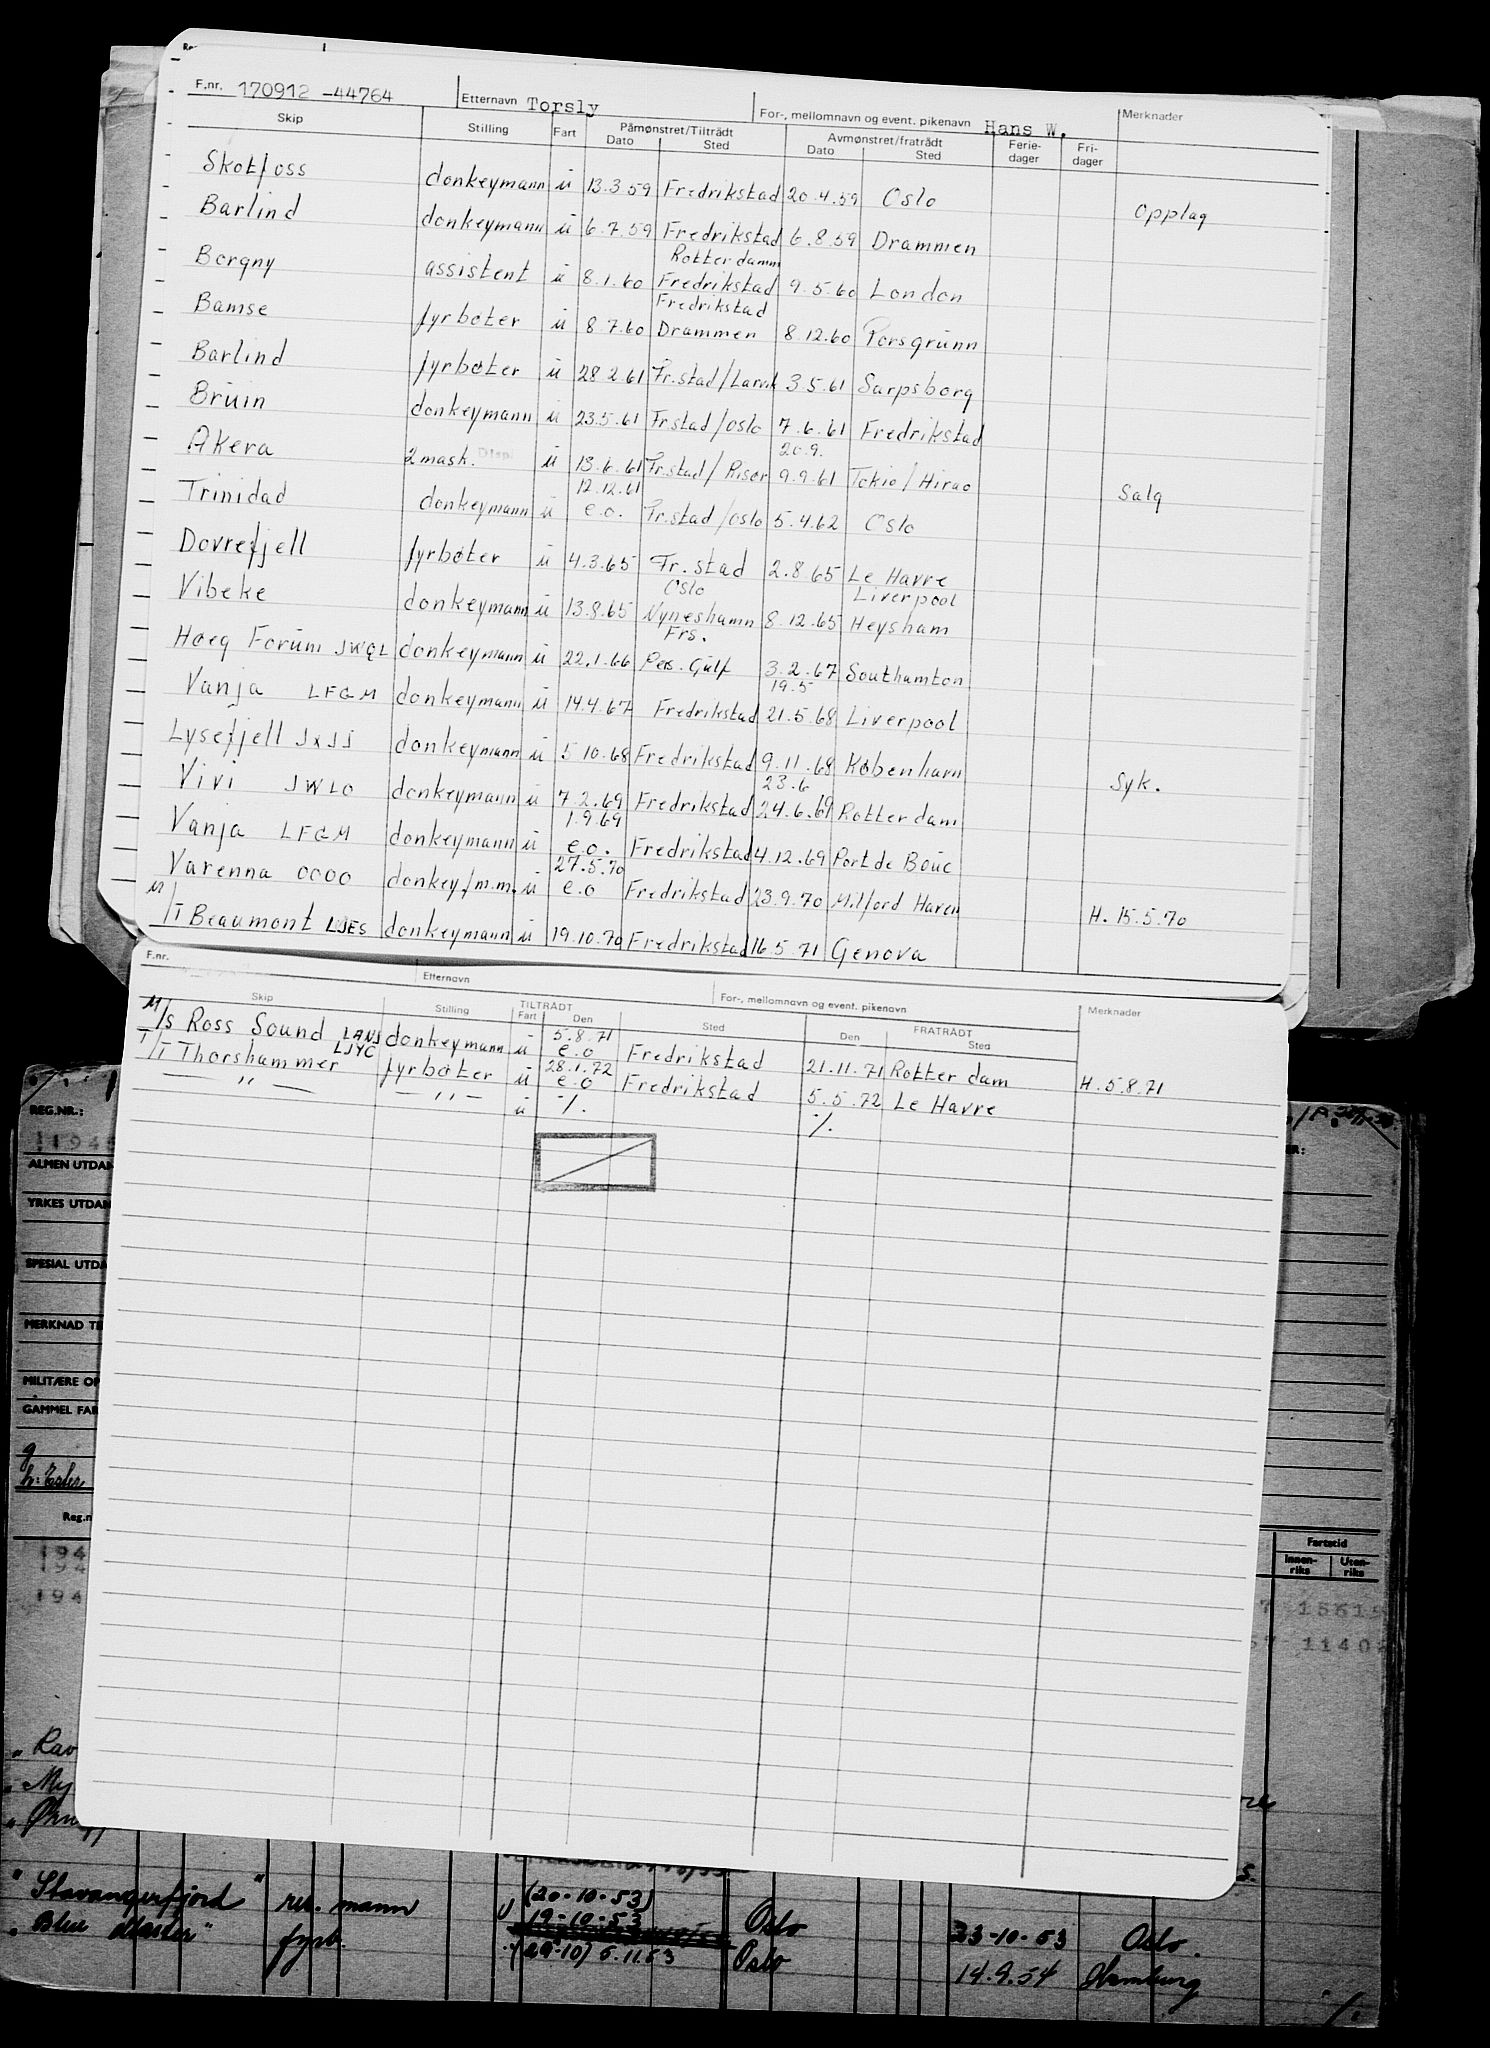 F.nr. 170912 -44764 Etternavn Torsly For-, mellomnavn og event. pikenavn Hans W. Merknader
Skip Stilling Fart Påmønstret/Tiltrådt Avmønstret/fratrådt Ferie- Fri-
Dato Sted Dato Sted dager dager
Skotfoss donkeymann ü 13.3 59 Fredrikstad 20.4.59 Oslo Opplag
Barlind donkeymann ü 6.7.59 Fredrikstad 6.8.59 Drammen
Rotterdamm
Borgny assistent ü 8.1.60 Fredrikstad 9.5.60 London
Fredrikstad
Bamse fyrbøter ü 8.7.60 Drammen 8.12.60 Porsgrunn
Barlind fyrbøter ü 28 2.61 Fr.stad/Larvik 3.5.61 Sarpsborg
Bruin donkeymann ü 23.5.61 Fr.stad/Oslo 7.6.61 Fredrikstad
20.9.
Akera 2 mask. Disp. ü 13.6.61 Fr.stad/Risør 9.9.61 Tokio/Hirao Salg
12.12.61
Trinidad donkeymann ü e.o. Fr.stad/Oslo 5.4.62 Oslo
Dovrefjell fyrbøter ü 4.3.65 Fr.stad 2.8.65 Le Havre
Oslo Liverpool
Vibeke donkeymann ü 13.8.65 Nyneshamn 8.12.65 Heysham
Frs.
Høeg Forum JWQL donkeymann ü 22.1.66 Pers. Gulf 3.2.67 Southamton
19.5
Vanja LFGM donkeymann ü 14.4.67 Fredrikstad 21.5.68 Liverpool
Lysefjell JXJJ donkeymann ü 5 10.68 Fredrikstad 9.11.68 København Syk.
23.6
Vivi JWLO donkeymann ü 7.2.69 Fredrikstad 24.6.69 Rotterdam
1.9.69
Vanja LFGM donkeymann ü e.o. Fredrikstad 4.12.69 Port de Bouc
27.5.70
Varenna OOOO donkey/m.m. ü e.o Fredrikstad 23.9.70 Milford Haven H. 15.5.70
M/T Beaumont LJES donkeymann ü 19.10.70 Fredrikstad 16.5.71 Genova
F.nr. Etternavn For-, mellomnavn og event. pikenavn Merknader
Skip Stilling TILTRÅDT FRATRÅDT
Fart Den Sted Den Sted
5.8.71
M/S Ross Sound LANJ donkeymann ü e.o Fredrikstad 21.11.71 Rotterdam H. 5.8.71
28.1.72
T/T Thorshammer LJYC fyrbøter ü e.o Fredrikstad 5.5.72 Le Havre
— " — — " — ü ./. ./.
REG.NR.:
ALMEN UTDAN
YRKES UTDAN
SPESIAL UTDA
MERKNAD TI
MILITÆRE OP
GAMMEL FAR
Reg.n
Fartstid
Innen- Uten-
riks riks
194
194
194
15615
1140
" Rav
" My
" Stavangerfjord " res. mann (20-10-53)
19-10-53 Oslo 23-10-53 Oslo.
" Blue Master " fyrb. (29-10) 5.11.53 Oslo 14.9.54 Hamburg